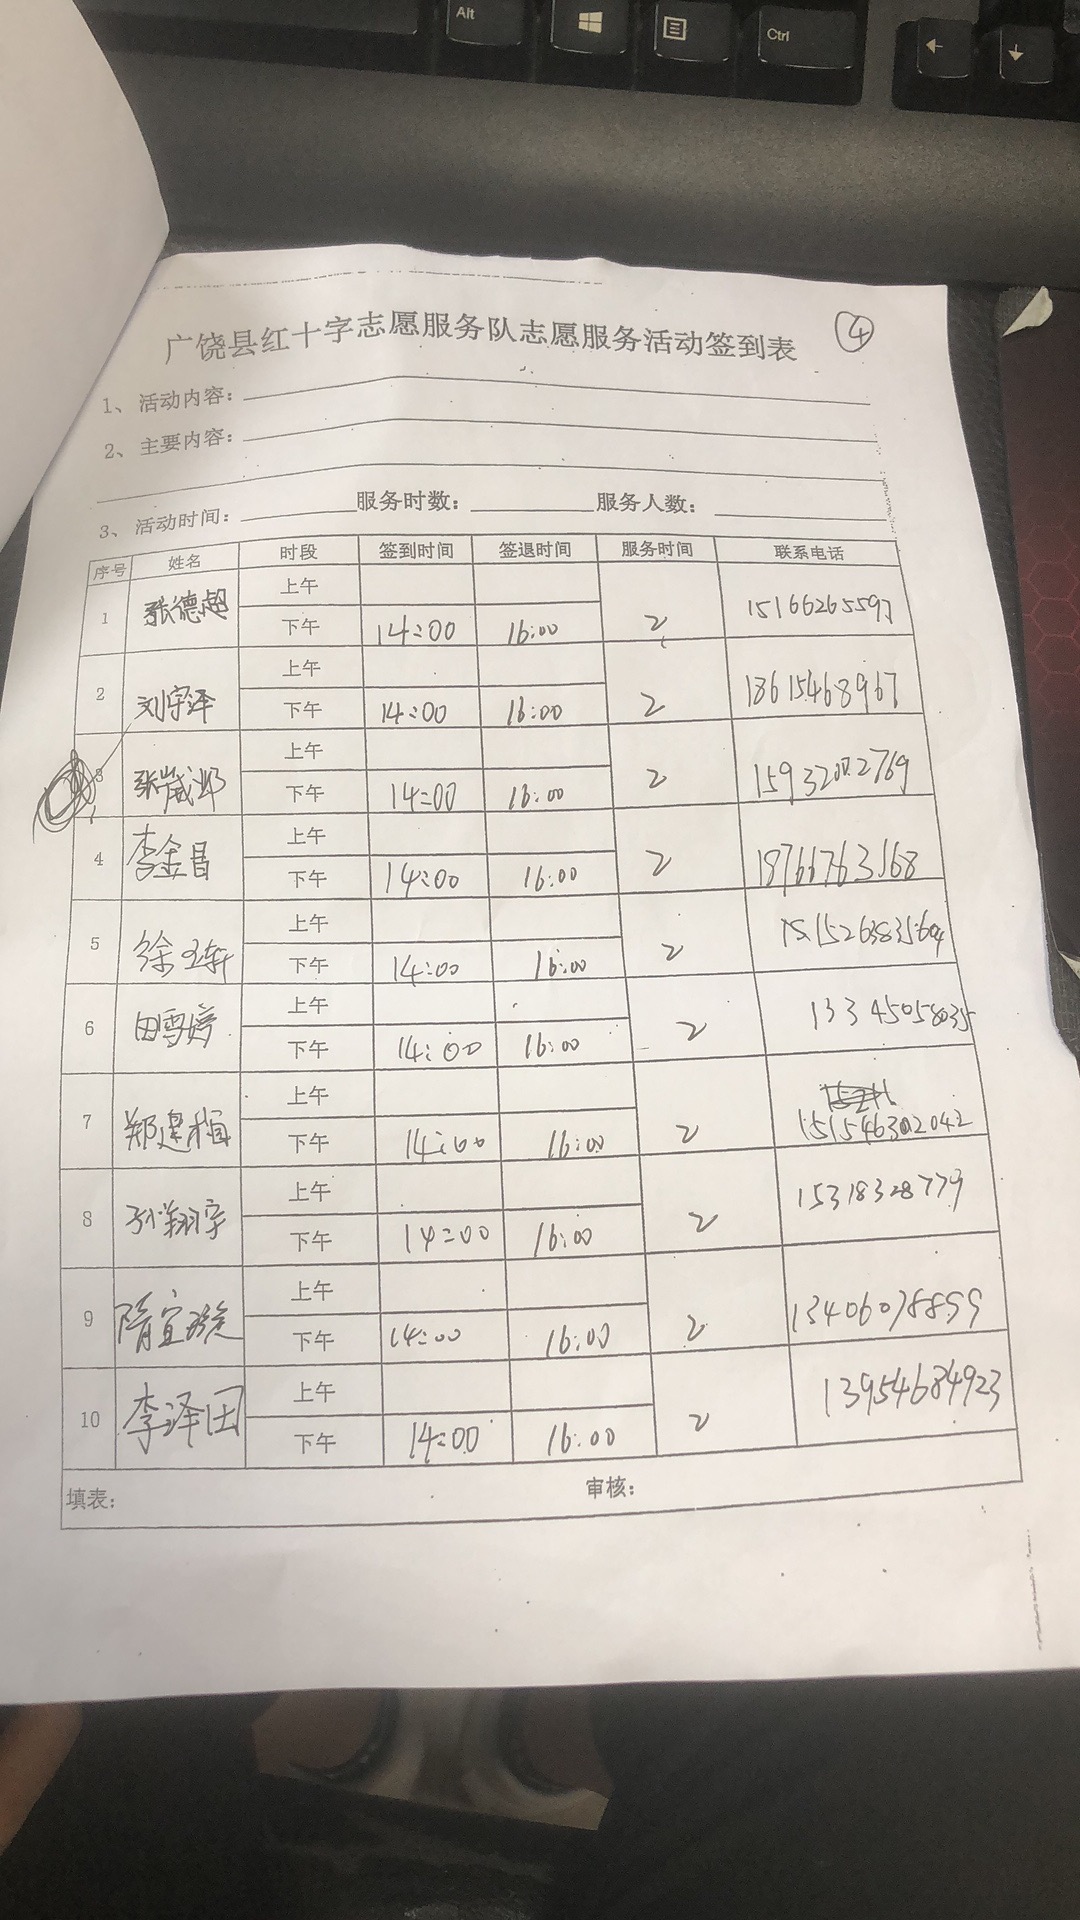 Alt
Ctrl
广饶县红十字志愿服务队志愿服务活动签到表
④
1、活动内容：
2、主要内容：
3、活动时间： 服务时数： 服务人数：
序号 姓名 时段 签到时间 签退时间 服务时间 联系电话
1 张德超 上午
下午 14:00 16:00 2 15166265597
2 刘宇泽 上午
下午 14:00 16:00 2 13615468967
3 张 上午
下午 14:00 16:00 2
4 李金昌 上午
下午 14:00 16:00 2 18766763168
5 徐 上午
下午 14:00 16:00 2
6 田雪婷 上午
下午 14:00 16:00 2
7 郑建 上午
下午 14:00 16:00 2
8 孙翔宇 上午
下午 14:00 16:00 2 15318328779
9 隋宜璇 上午
下午 14:00 16:00 2 13406078899
10 李泽田 上午
下午 14:00 16:00 2 13954684923
填表： 审核：